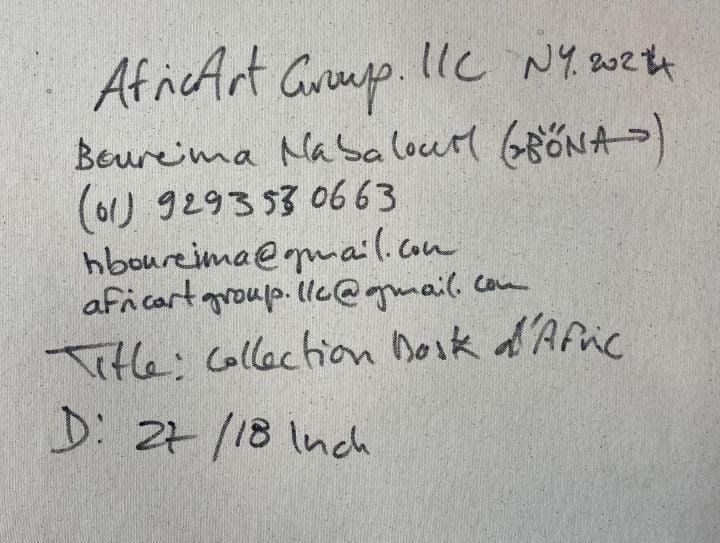 AfricArt Group.llc NY.2024
Boureima Nabaloum (BÖNA)
(01) 929 353 0663
nboureima@gmail.com
africartgroup.llc@gmail.com
Title: Collection Mask d'Afric
D: 27/18 Inch